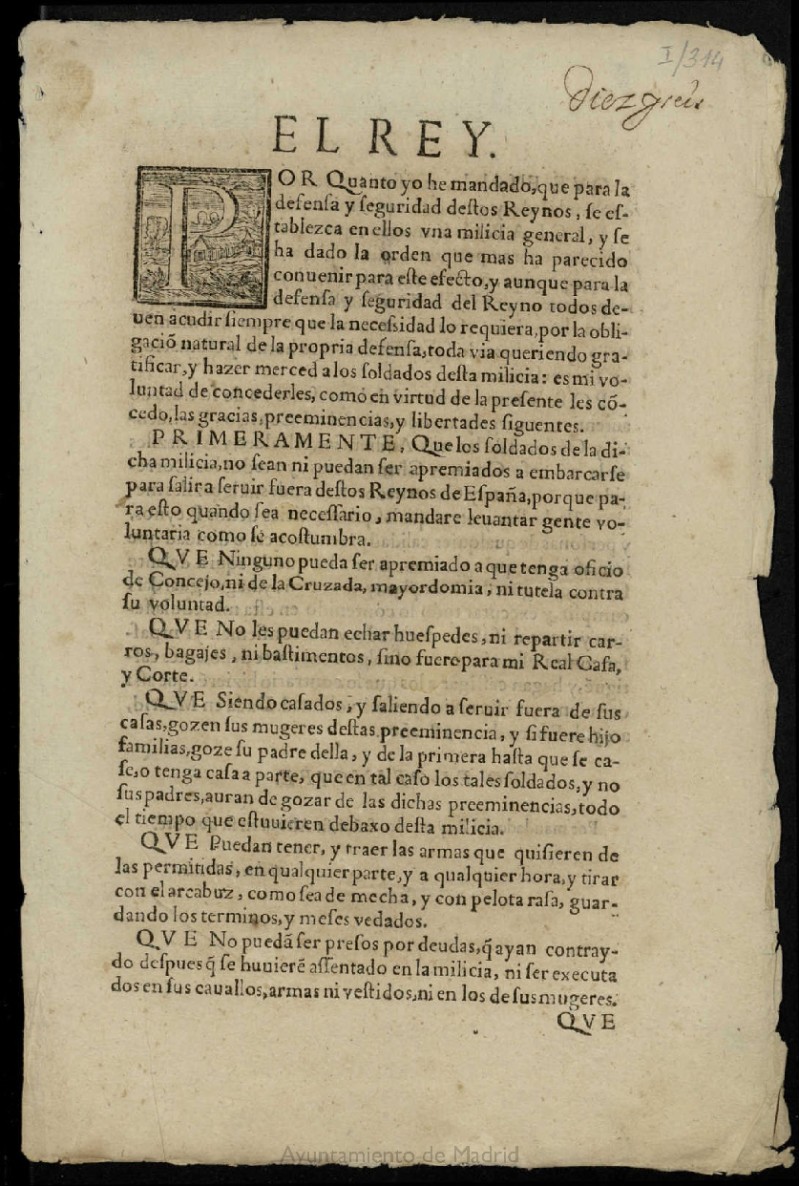 I/314
Diez gros
EL REY.
POR Quanto yo he mandado, que para la
defensa y seguridad destos Reynos, se es-
tablezca en ellos vna milicia general, y se
ha dado la orden que mas ha parecido
conuenir para este efecto, y aunque para la
defensa y seguridad del Reyno todos de-
uen acudir siempre que la necessidad lo requiera, por la obli-
gació natural de la propria defensa, toda via queriendo gra-
tificar, y hazer merced a los soldados desta milicia: es mi vo-
luntad de concederles, como en virtud de la presente les có-
cedo, las gracias, preeminencias, y libertades siguentes.
PRIMERAMENTE, Que los soldados de la di-
cha milicia, no sean ni puedan ser apremiados a embarcarse
para salir a seruir fuera destos Reynos de España, porque pa-
ra esto quando sea necessario, mandare leuantar gente vo-
luntaria como se acostumbra.
QVE Ninguno pueda ser apremiado a que tenga oficio
de Concejo, ni de la Cruzada, mayordomia, ni tutela contra
su voluntad.
QVE No les puedan echar huespedes, ni repartir car-
ros, bagajes, ni bastimentos, sino fuere para mi Real Casa,
y Corte.
QVE Siendo casados, y saliendo a seruir fuera de sus
casas, gozen sus mugeres destas preeminencia, y si fuere hijo
familias, goze su padre della, y de la primera hasta que se ca-
se, o tenga casa a parte, que en tal caso los tales soldados, y no
sus padres, auran de gozar de las dichas preeminencias, todo
el tiempo que estuuieren debaxo desta milicia.
QVE Puedan tener, y traer las armas que quisieren de
las permitidas, en qualquier parte, y a qualquier hora, y tirar
con el arcabuz, como sea de mecha, y con pelota rasa, guar-
dando los terminos, y meses vedados.
QVE No puedã ser presos por deudas, q̃ ayan contray-
do despues q̃ se huuierẽ assentado en la milicia, ni ser executa
dos en sus cauallos, armas ni vestidos, ni en los de sus mugeres.
QVE
Ayuntamiento de Madrid